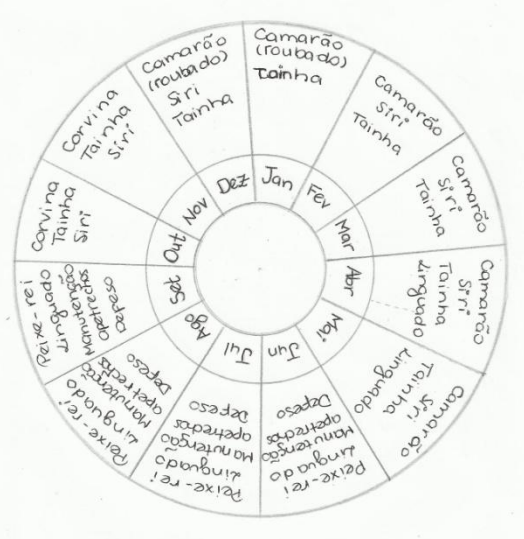 Camarão
(roubado)
Tainha
Jan
Camarão
Siri
Tainha
Fev
Camarão
Siri
Tainha
Mar
Camarão
Siri
Tainha
Linguado
Abr
Camarão
Siri
Tainha
Linguado
Mai
Peixe-rei
Linguado
Manutenção
apetrechos
Depeso
Jun
Peixe-rei
Linguado
Manutenção
apetrechos
Depeso
Jul
Peixe-rei
Linguado
Manutenção
apetrechos
Depeso
Ago
Peixe-rei
Linguado
Manutenção
apetrechos
Depeso
Set
Corvina
Tainha
Siri
Out
Corvina
Tainha
Siri
Nov
Camarão
(roubado)
Siri
Tainha
Dez